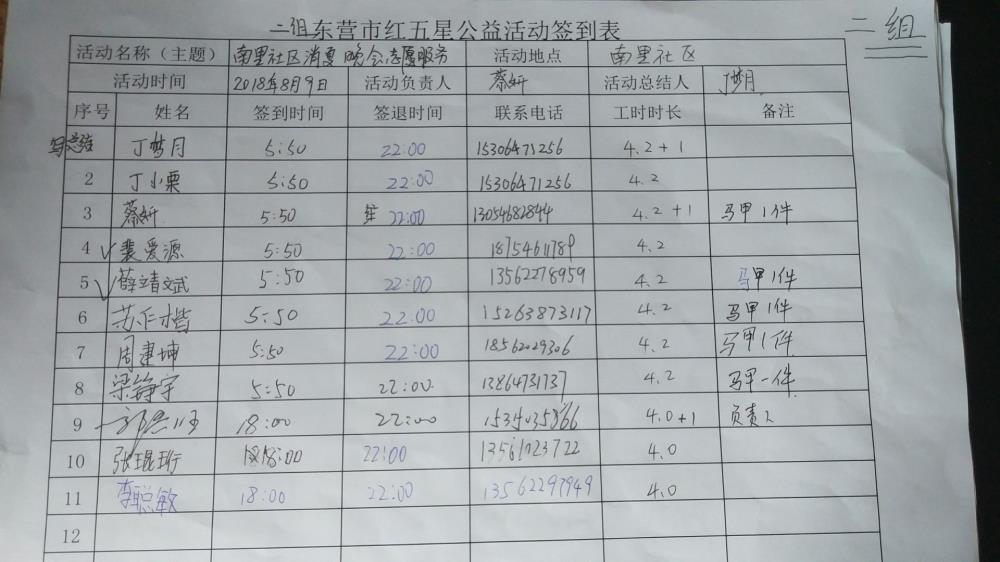 二组
二组东营市红五星公益活动签到表
活动名称（主题） 南里社区消夏晚会志愿服务 活动地点 南里社区
活动时间 2018年8月9日 活动负责人 蔡妍 活动总结人 丁梦月
序号 姓名 签到时间 签退时间 联系电话 工时时长 备注
写总结 丁梦月 5:50 22:00 15306471256 4.2+1
2 丁小栗 5:50 22:00 15306471256 4.2
3 蔡妍 5:50 22:00 13054682844 4.2+1 马甲1件
4 裴爱源 5:50 22:00 18754611789 4.2
5 薛靖斌 5:50 22:00 13562278959 4.2 马甲1件
6 5:50 22:00 15263873117 4.2 马甲1件
7 周建坤 5:50 22:00 18562029306 4.2 马甲1件
8 梁铮宇 5:50 22:00 13864731737 4.2 马甲一件
9 18:00 22:00 4.0+1 负责人
10 张琨珩 18:00 22:00 13561023722 4.0
11 李聪敏 18:00 22:00 13562297949 4.0
12